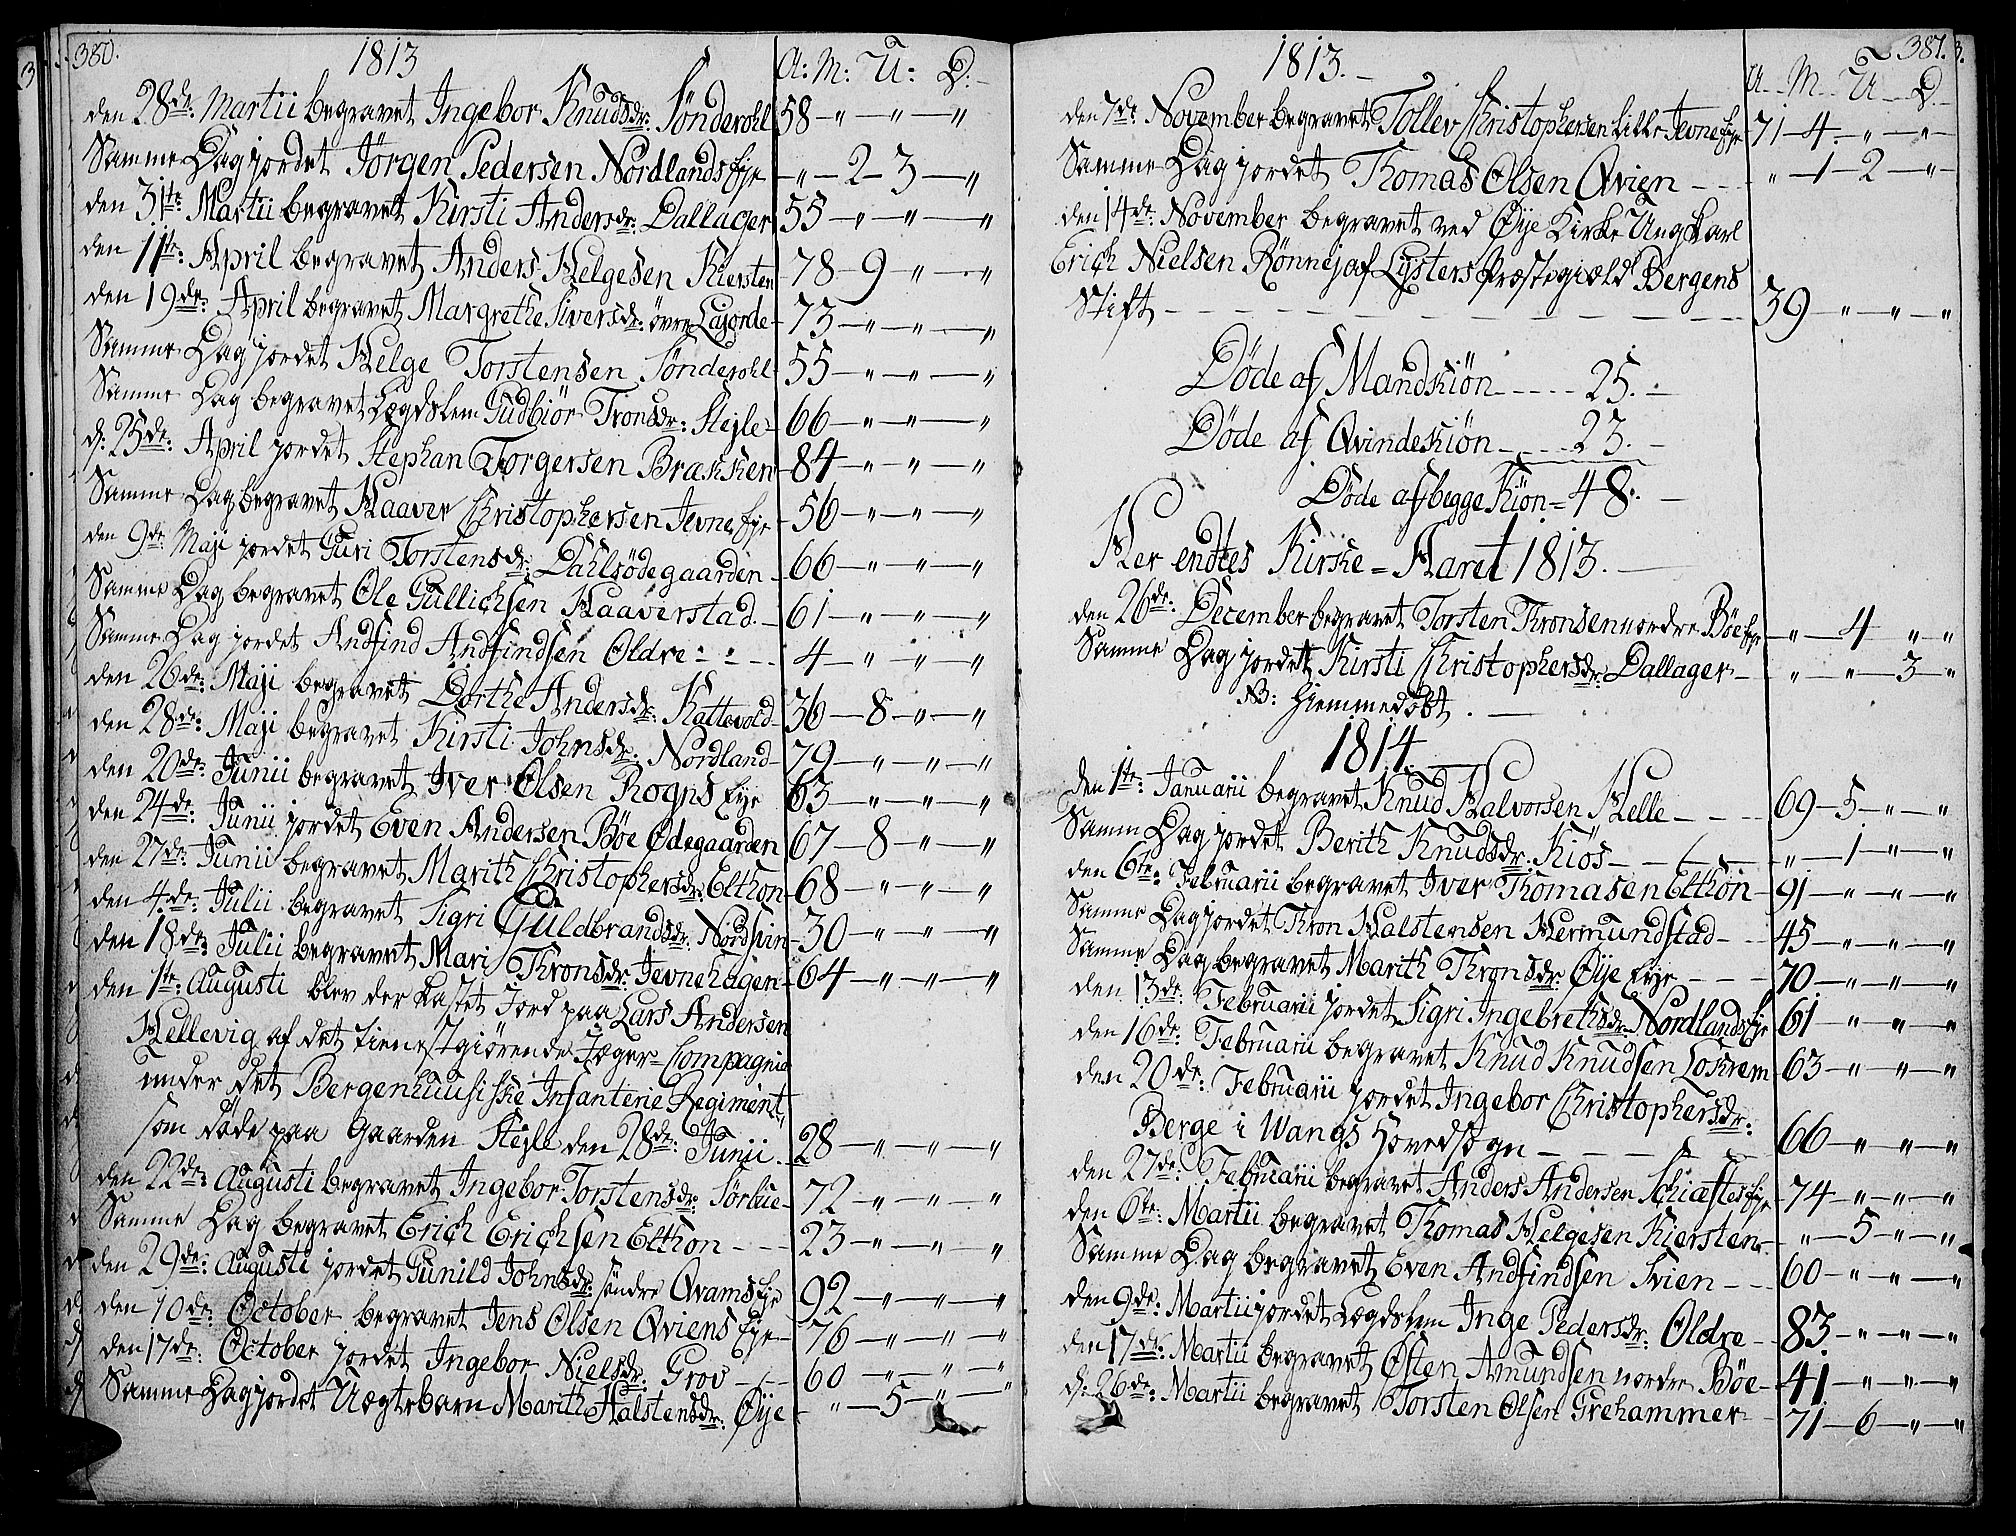 380.
1813
A: M: U: D.
den 28de: Martii begravet Ingebor Knudsdr: Sönderohl 58 — " — " — "
Samme Dag jordet Jörgen Pedersen Nordlands Eje — " — 2 — 3 — "
den 31te: Martii begravet Kirsti Andersdr: Dallager 55 — " — " — "
den 11te: April begravet Anders Helgesen Kiersten 78 — 9 — " — "
den 19de: April begravet Margrethe Siversdr: övre Lajorde — 73 — " — " — "
Samme Dag jordet Helge Torstensen Sönderohl 55 — " — " — "
Samme Dag begravet Lægdslem Gudbiör Tronsdr: Hejle — 66 — " — " — "
d: 25de: April jordet Stephan Torgersen Brækken 84 — " — " — "
Samme Dag begravet Haaver Christophersen Jevne Eje — 56 — " — " — "
den 9de Maji jordet Guri Torstensdr: Dahlsödegaarden — 66 — " — " — "
Samme Dag begravet Ole Gullichsen Haaverstad — 61 — " — " — "
Samme Dag jordet Andfind Andfindsen Oldre — 4 — " — " — "
den 26de: Maji begravet Dorthe Andersdr: Kattevold — 36 — 8 — " — "
den 28de: Maji begravet Kirsti Johnsdr: Nordland — 79 — " — " — "
den 20de: Junii begravet Iver Olsen Rogns Eje 63 — " — " — "
den 24de: Junii jordet Even Andersen Böe Ödegaarden 67 — 8 — " — "
den 27de: Junii begravet Marith Christophersdr: Elthon — 68 — " — " — "
den 4de: Julii begravet Sigri Guldbrandsdr: Nordsvin — 30 — " — " — "
den 18de: Julii begravet Mari Thronsdr: Jevnehagen — 64 — " — " — "
den 1ste: Augusti blev der kastet Jord paa Lars Andersen
Hellevig af det tienestgiörende Jæger-Compagnie
under det Bergenhuusiske Infanterie Regiment,
som döde paa Gaarden Hejle den 28de: Junii — 28 — " — " — "
den 22de: Augusti begravet Ingebor Torstensdr: Sörbue — 72 — " — " — "
Samme Dag begravet Erich Erichsen Elthon — 23 — " — " — "
den 29de: Augusti jordet Gunild Johnsdr: söndre Qvams Eje 92 — " — " — "
den 10de October begravet Jens Olsen Qviens Eje — 76 — " — " — "
den 17de: October jordet Ingebor Nielsdr: Grov — 60 — " — " — "
Samme Dag jordet Uægtebarn Marith Halstensdr: Öije — " — 5 — " — "
381.
1813.
A. M. U. D.
den 7de: November begravet Tollev Christophersen Lille Jevne Eje 71 — 4 — " — "
Samme Dag jordet Thomas Olsen Qvien — " — 1 — 2 — "
den 14de: November begravet ved Öije Kirke Ungkarl
Erich Nielsen Rönnej af Lysters Præstegiæld Bergens
Stift — 39 — " — " — "
Döde af Mandkiön — 25.
Döde af Qvindekiön — 23.
Döde af begge Kiön = 48.
Her endtes Kirke-Aaret 1813.
den 26de: December begravet Torsten Thronsen nordre Böe Eje — " — 4 " "
Samme Dag jordet Kirsti Christophersdr: Dallager — " — " — 3 — "
NB: Hiemmedöbt.
1814
den 1te: Januarii begravet Knud Halvorsen Helle — 69 — 5 — " — "
Samm Dag jordet Berith Knudsdr: Kiös — " — 1 — " — "
den 6te: Februarii begravet Iver Thomasen Elthon — 91 — " — " — "
Samme Dag jordet Thron Halstensen Hermundstad — 45 — " — " — "
Samme Dag begravet Marith Thronsdr: Öije Eje — 70 — " — " — "
den 13de: Februarii jordet Sigri Ingebrethsdr: Nordlands Eje 61 — " — " — "
den 16de: Februarii begravet Knud Knudsen Lokrem 63 — " — " — "
den 20de: Februarii jordet Ingebor Christophersdr:
Berge i Wangs Hovedsogn — 66 — " — " — "
den 27de: Februarii begravet Anders Andersen Schiæftes Eje — 74 — " — " — "
den 6te: Martii begravet Thomas Helgesen Kiersten — " — 5 — " — "
Samme Dag begravet Even Andfindsen Svien — 60 — " — " — "
den 9de: Martii jordet Lægdslem Inge Pedersdr: Oldre — 83 — " — " — "
den 17de: Martii begravet Östen Amundsen nordre Böe — 41 — " — " — "
d: 26de: Martii begravet Torsten Olsen Grehammer — 71 — 6 — " — "